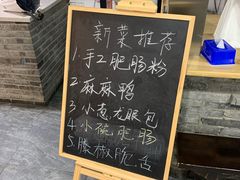 新菜推荐
1.手工肥肠粉
2.麻麻鸭
3小葱龙眼包
4小碗肥肠
5.藤椒脆舌